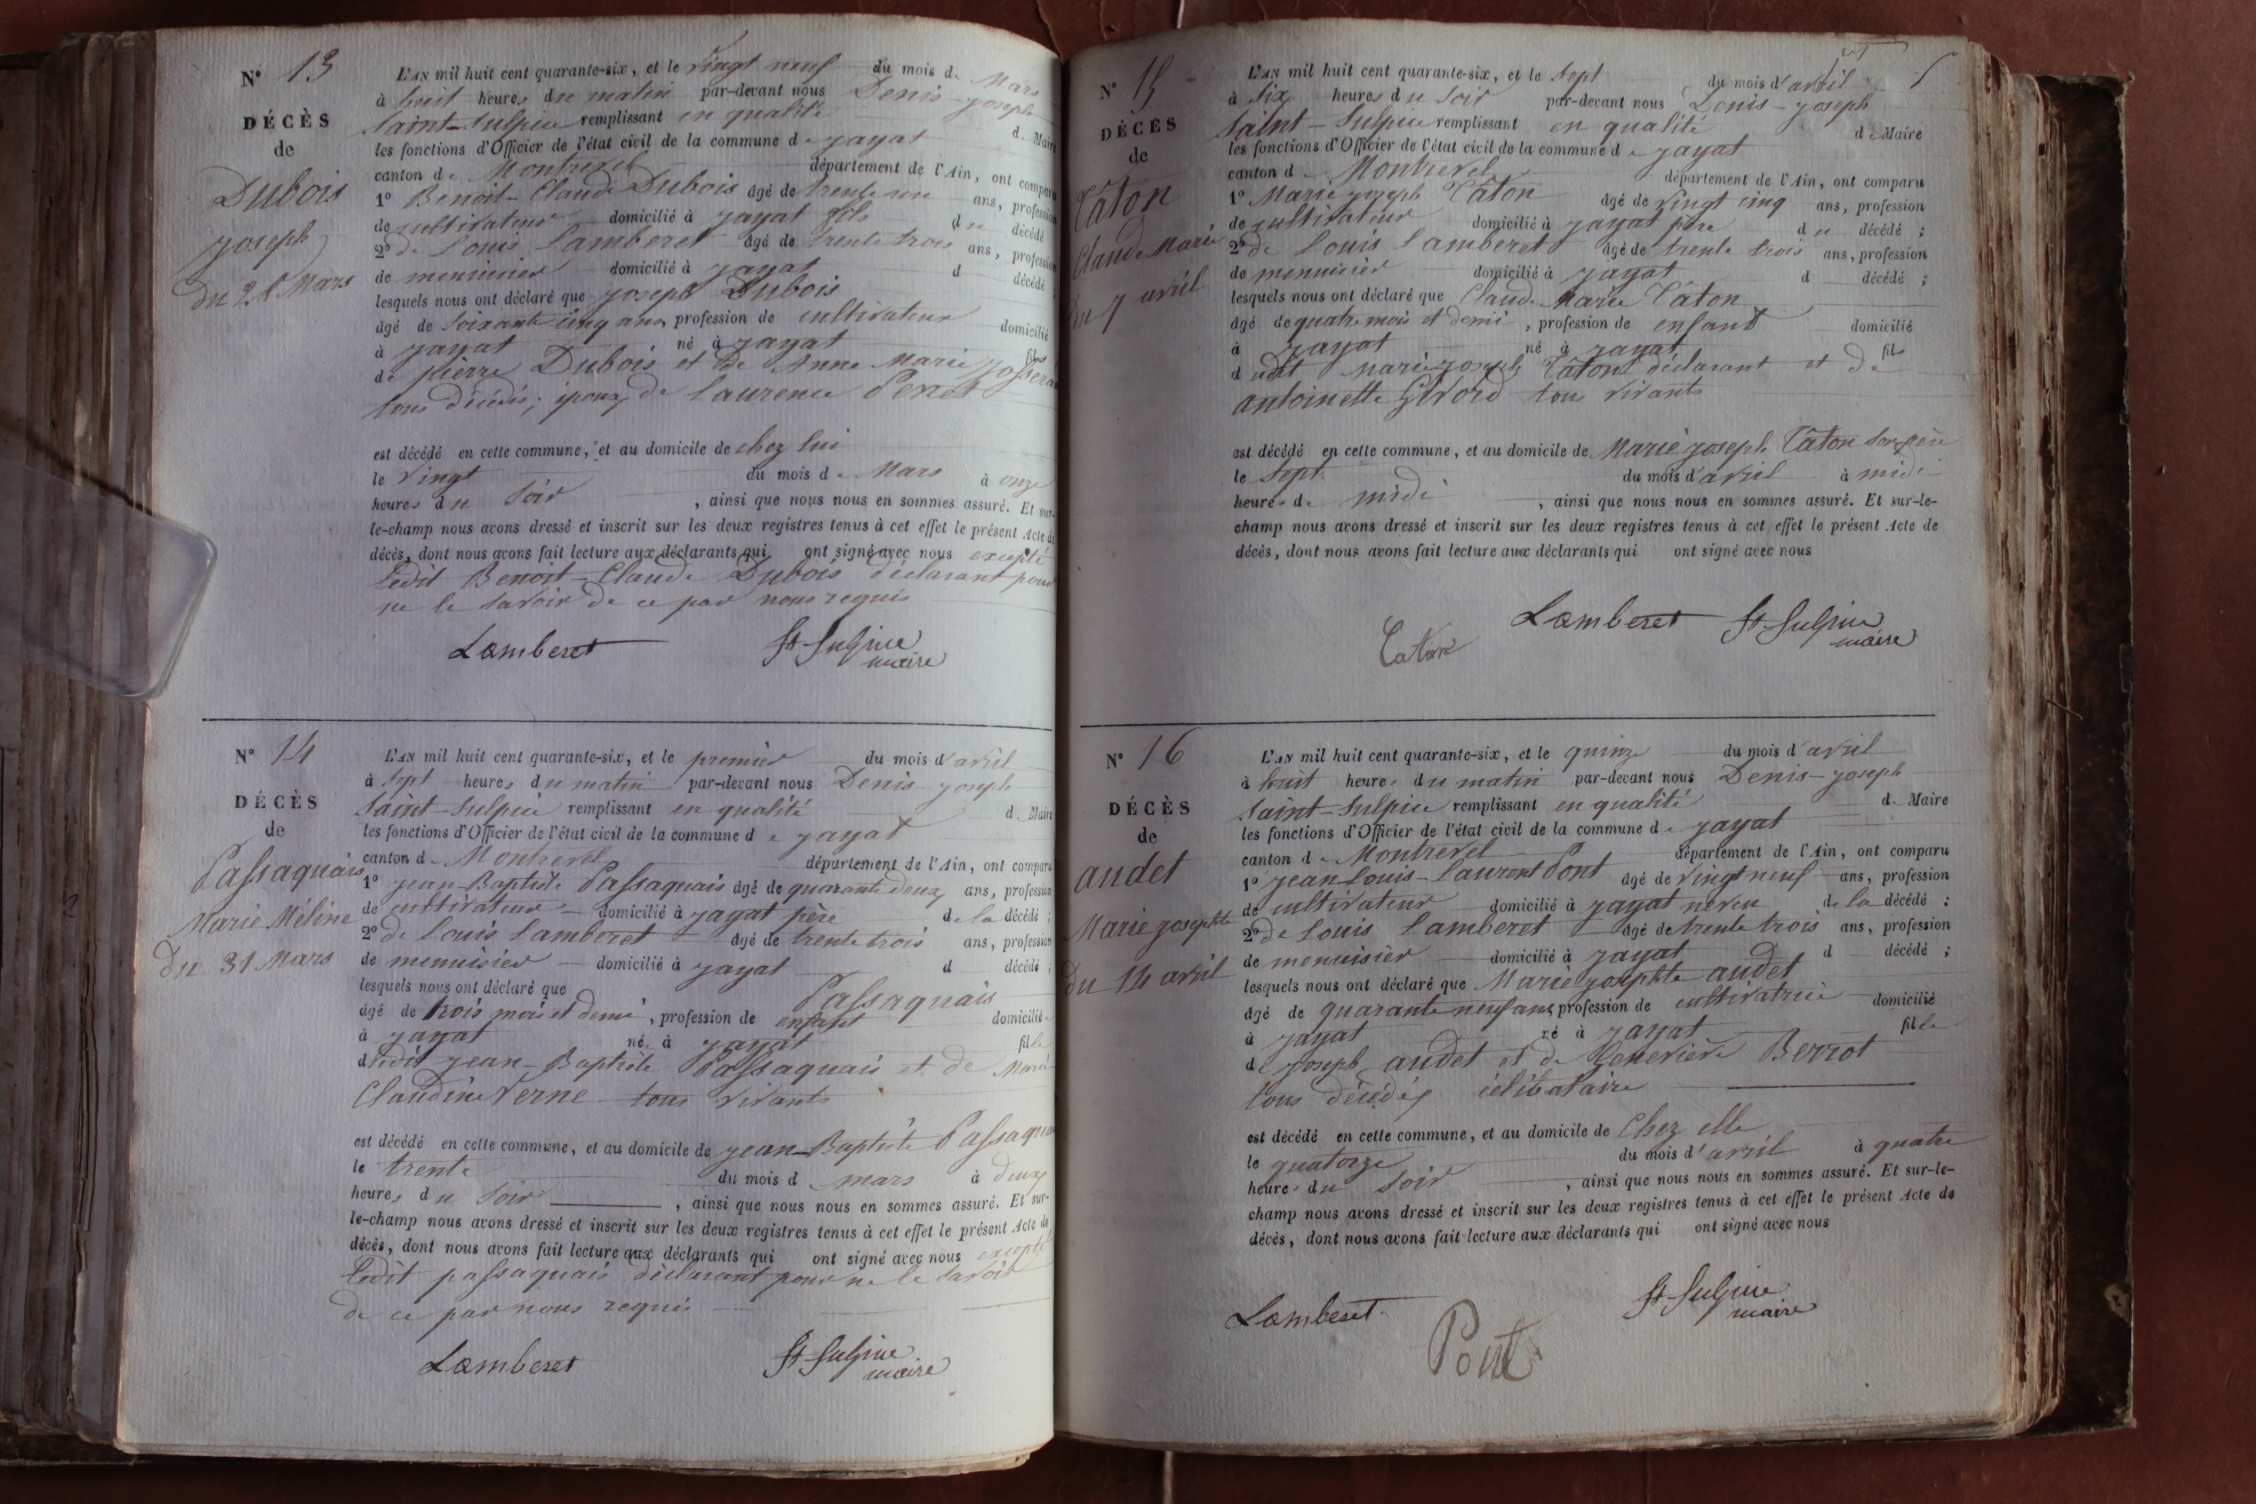 N° 13
DÉCÈS
de
Dubois
joseph
du 28 Mars
L'AN mil huit cent quarante-six, et le vingt neuf du mois de Mars
à huit heures du matin par-devant nous Denis-joseph
Saint-Sulpice remplissant en qualité de Maire
les fonctions d'Officier de l'état civil de la commune de jayat
canton de Montrevel département de l'Ain, ont comparu
1° Benoit-Claude Dubois âgé de trente un ans, profession
de cultivateur domicilié à jayat fils du décédé
2° de Louis Lamberet âgé de trente trois ans, profession
de menuisier domicilié à jayat d décédé
lesquels nous ont déclaré que joseph Dubois
âgé de soixante cinq ans, profession de cultivateur domicilié
à jayat né à jayat fils
de pierre Dubois et de Anne Marie
tous décédés; époux de Laurence Penet
est décédé en cette commune, et au domicile de chez lui
le vingt du mois de Mars à onze
heures du soir, ainsi que nous nous en sommes assuré. Et sur-
le-champ nous avons dressé et inscrit sur les deux registres tenus à cet effet le présent Acte de
décès, dont nous avons fait lecture aux déclarants qui ont signé avec nous excepté
ledit Benoit-Claude Dubois déclarant pour
ne le savoir de ce par nous requis
Lamberet St Sulpice
maire
N° 14
DÉCÈS
de
Passaquais
Marie Méline
du 31 Mars
L'AN mil huit cent quarante-six, et le premier du mois d'avril
à sept heures du matin par-devant nous Denis joseph
Saint-Sulpice remplissant en qualité de Maire
les fonctions d'Officier de l'état civil de la commune de jayat
canton de Montrevel département de l'Ain, ont comparu
1° jean-Baptiste Passaquais âgé de quarante deux ans, profession
de cultivateur domicilié à jayat père de la décédé ;
2° de Louis Lamberet âgé de trente trois ans, profession
de menuisier domicilié à jayat d décédé ;
lesquels nous ont déclaré que Passaquais
âgé de trois mois et demi, profession de enfant domicilié
à jayat né à jayat fille
dudit jean-Baptiste Passaquais et de Marie
Claudine Verne tous vivants
est décédé en cette commune, et au domicile de jean-Baptiste Passaquais
le trente du mois d mars à deux
heures du soir, ainsi que nous nous en sommes assuré. Et sur-
le-champ nous avons dressé et inscrit sur les deux registres tenus à cet effet le présent Acte de
décès, dont nous avons fait lecture aux déclarants qui ont signé avec nous excepté
ledit passaquais déclarant pour ne le savoir
de ce par nous requis
Lamberet St Sulpice
maire
N° 15
DÉCÈS
de
Tâton
Claude Marie
du 7 avril
L'AN mil huit cent quarante-six, et le sept du mois d'avril
à six heures du soir par-devant nous Denis-joseph
Saint-Sulpice remplissant en qualité de Maire
les fonctions d'Officier de l'état civil de la commune de jayat
canton de Montrevel département de l'Ain, ont comparu
1° Marie joseph Tâton âgé de vingt cinq ans, profession
de cultivateur domicilié à jayat père du décédé ;
2° de Louis Lamberet âgé de trente trois ans, profession
de menuisier domicilié à jayat d décédé ;
lesquels nous ont déclaré que Claude Marie Tâton
âgé de quatre mois et demi, profession de enfant domicilié
à jayat né à jayat fils
dudit Marie joseph Tâton déclarant et de
antoinette Girord tous vivants
est décédé en cette commune, et au domicile de Marie joseph Tâton son père
le sept du mois d'avril à midi
heures de midi, ainsi que nous nous en sommes assuré. Et sur-le-
champ nous avons dressé et inscrit sur les deux registres tenus à cet effet le présent Acte de
décès, dont nous avons fait lecture aux déclarants qui ont signé avec nous
Taton Lamberet St Sulpice
maire
N° 16
DÉCÈS
de
audet
Marie josephte
du 14 avril
L'AN mil huit cent quarante-six, et le quinze du mois d'avril
à huit heures du matin par-devant nous Denis-joseph
Saint-Sulpice remplissant en qualité de Maire
les fonctions d'Officier de l'état civil de la commune de jayat
canton de Montrevel département de l'Ain, ont comparu
1° jean Louis-Laurent Pont âgé de vingt neuf ans, profession
de cultivateur domicilié à jayat neveu de la décédé ;
2° de Louis Lamberet âgé de trente trois ans, profession
de menuisier domicilié à jayat d décédé ;
lesquels nous ont déclaré que Marie josephte audet
âgé de quarante neuf ans, profession de cultivatrice domicilié
à jayat né à jayat fille
de joseph audet et de Genevière Berrot
tous décédés célibataire
est décédé en cette commune, et au domicile de Chez elle
le quatorze du mois d'avril à quatre
heures du soir, ainsi que nous nous en sommes assuré. Et sur-le-
champ nous avons dressé et inscrit sur les deux registres tenus à cet effet le présent Acte de
décès, dont nous avons fait lecture aux déclarants qui ont signé avec nous
Lamberet Pont St Sulpice
maire